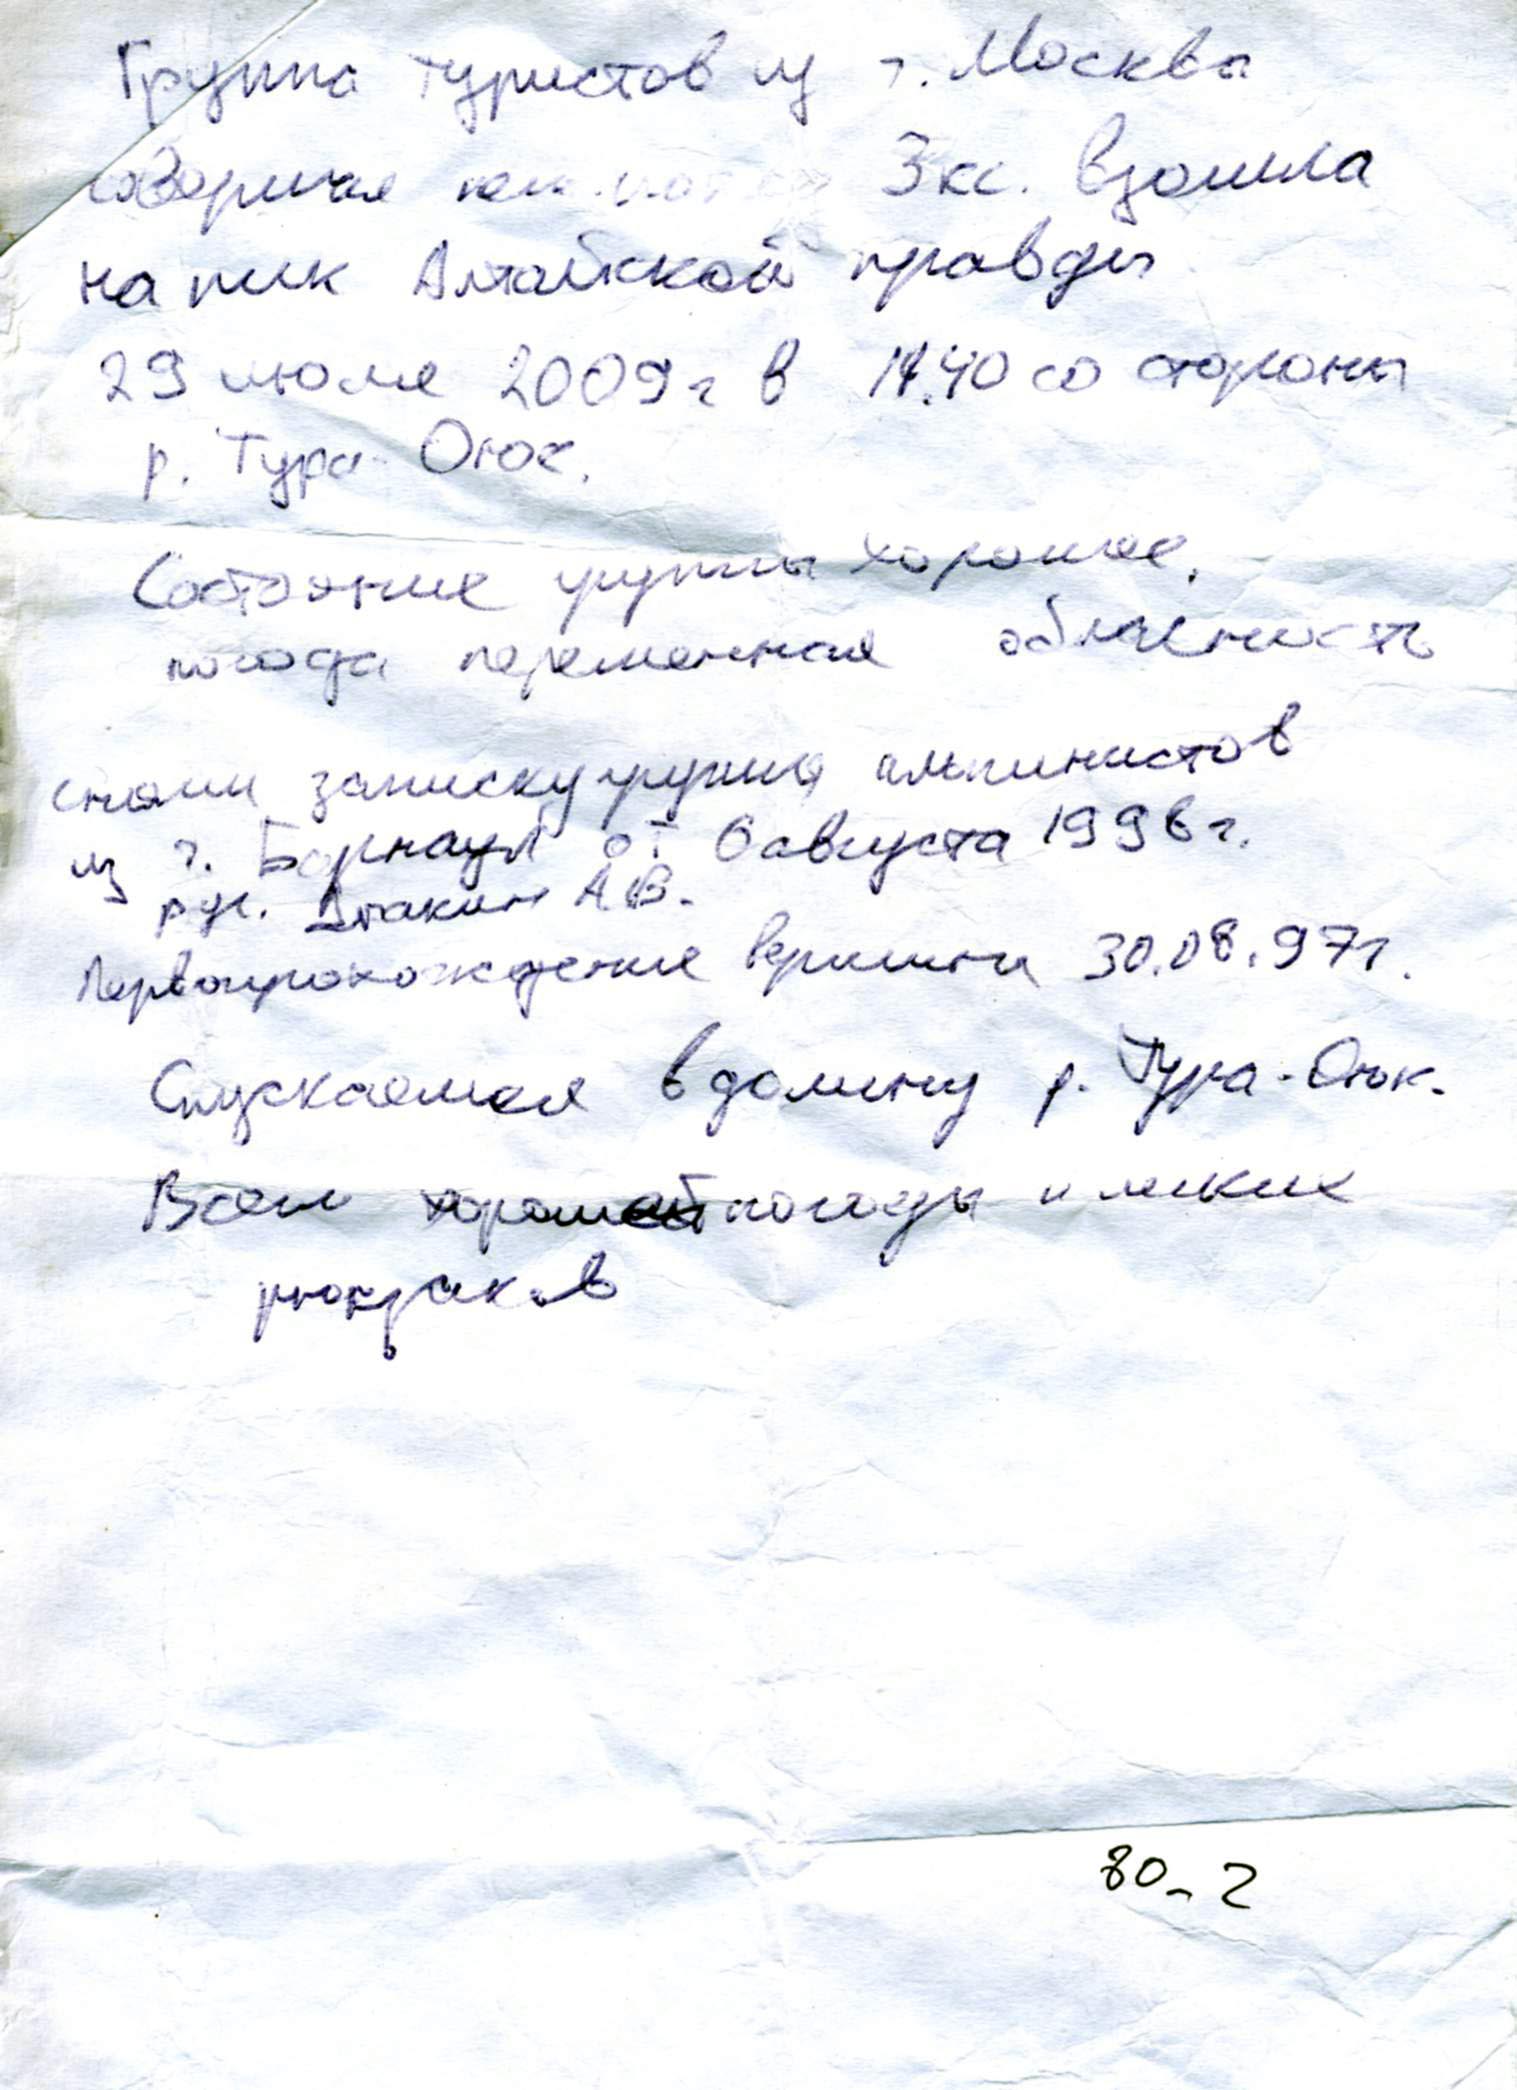 Группа туристов из г. Москвы
совершая пеш. поход 3 кс. взошла
на пик Алтайской правды
29 июля 2009 г в 14.40 со стороны
р. Тура-Оюк.
Состояние группы хорошее,
погода переменная облачность
сняли записку группы альпинистов
из г. Барнаул от 6 августа 1998 г.
рук. А.В.
Первопрохождение вершины 30.08.97 г.
Спускаемся в долину р. Тура-Оюк.
Всем хорошей погоды и легких
рюкзаков
80-2